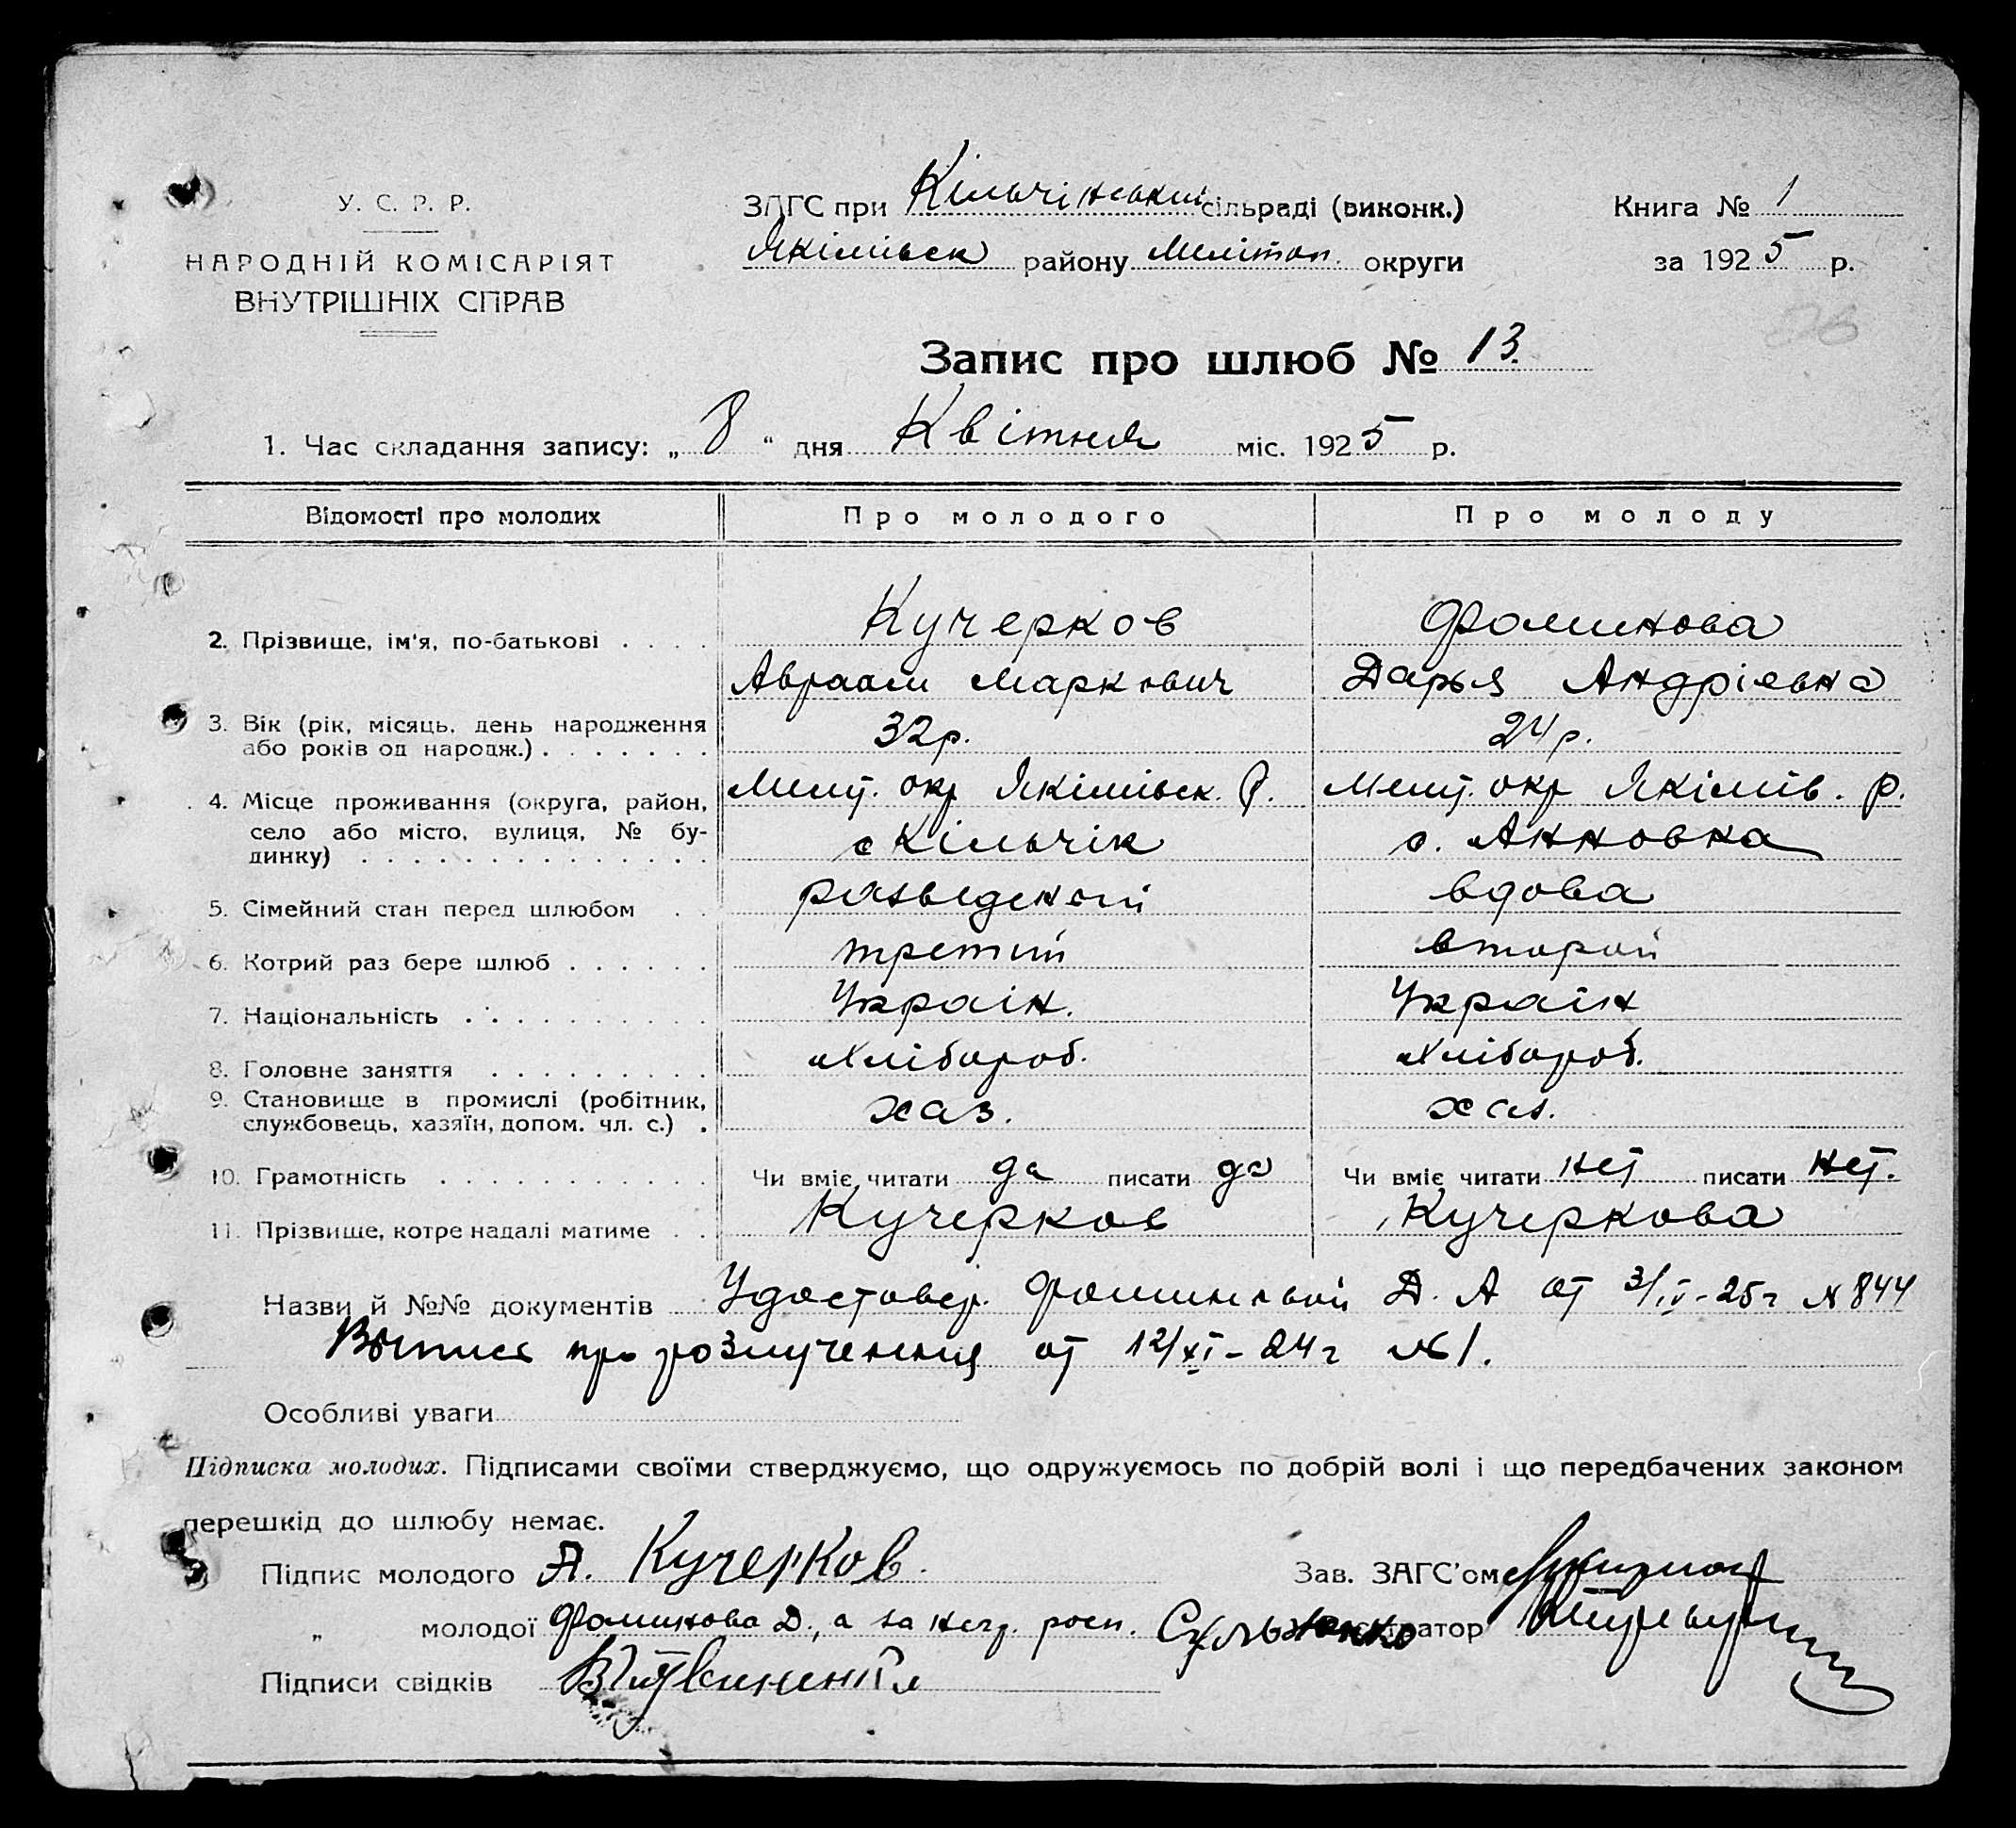 У. С. Р. Р.
НАРОДНІЙ КОМІСАРІЯТ
ВНУТРІШНІХ СПРАВ
ЗАГС при Кільчінський сільраді (виконк.)
Якімівськ району Мелітоп. округи
Книга № 1
за 1925 р.
Запис про шлюб № 13.
1. Час складання запису: „ 8 “ дня Квітня міс. 1925 р.
Відомості про молодих Про молодого Про молоду
2. Прізвище, ім'я, по-батькові . . . . Кучерков Фоминова
Авраам Маркович Дарья Андріевна
3. Вік (рік, місяць, день народження
або років од народж.) . . . . . . . 32р. 24р.
4. Місце проживання (округа, район, Меліт. окр Якімівськ. р. Меліт. окр Якімів. р.
село або місто, вулиця, № бу-
динку) . . . . . . . . . . . . . . с Кільчік с. Анновка
5. Сімейний стан перед шлюбом . . разведеной вдова
6. Котрий раз бере шлюб . . . . . . третий второй
7. Національність . . . . . . . . . . Украін. Украін
8. Головне заняття . . . . . . . . . Хлібороб. Хлібороб.
9. Становище в промислі (робітник,
службовець, хазяїн, допом. чл. с.) . хаз. хаз.
10. Грамотність . . . . . . . . . . . Чи вміє читати да писати да Чи вміє читати нет писати нет.
11. Прізвище, котре надалі матиме . . Кучерков Кучеркова
Назви й №№ документів Удостовер. Фоминовой Д. А от 3/IV-25г № 844
Выпись про розлучення от 12/XI-24г № 1.
Особливі уваги
Підписка молодих. Підписами своїми стверджуємо, що одружуємось по добрій волі і що передбачених законом
перешкід до шлюбу немає.
Підпис молодого А. Кучерков. Зав. ЗАГС'ом
„ молодої Фоминова Д., а за негр. росп.
Підписи свідків